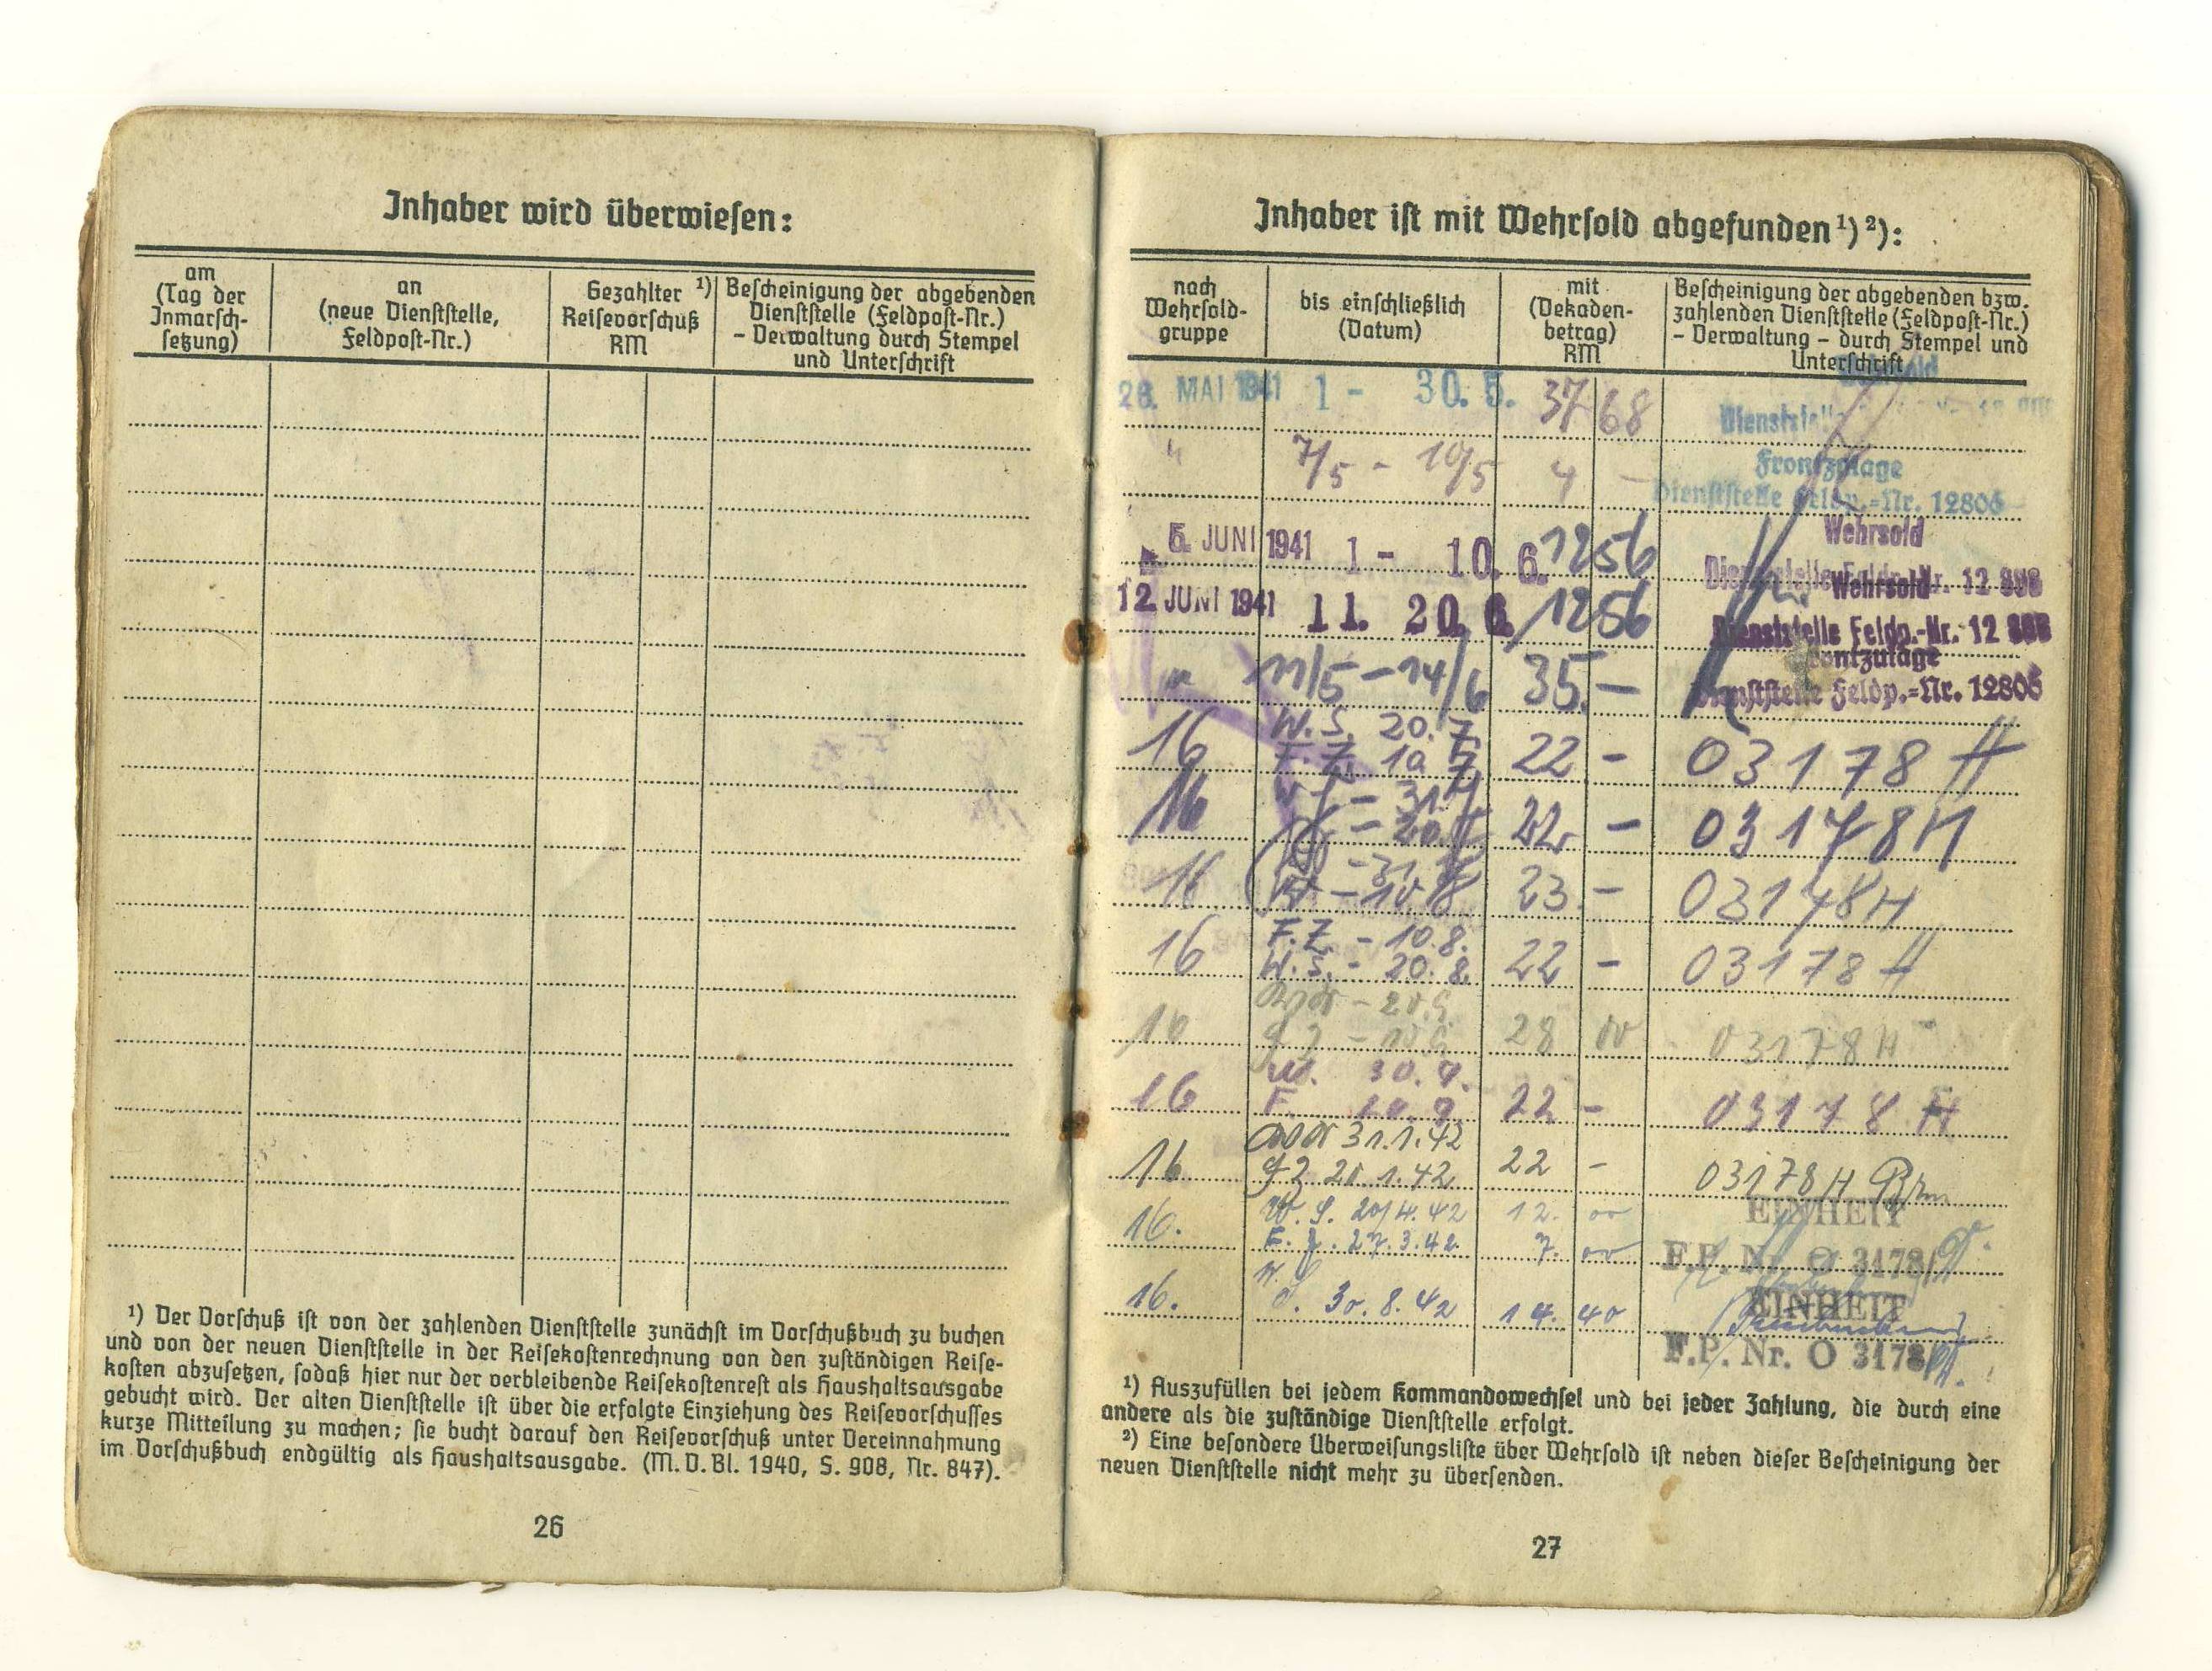 Inhaber wird überwiesen:
am
(Tag der
Inmarsch-
setzung)
an
(neue Dienststelle,
Feldpost-Nr.)
Gezahlter ¹)
Reisevorschuß
RM
Bescheinigung der abgebenden
Dienststelle (Feldpost-Nr.)
- Verwaltung durch Stempel
und Unterschrift
¹) Der Vorschuß ist von der zahlenden Dienststelle zunächst im Vorschußbuch zu buchen
und von der neuen Dienststelle in der Reisekostenrechnung von den zuständigen Reise-
kosten abzusetzen, sodaß hier nur der verbleibende Reisekostenrest als Haushaltsausgabe
gebucht wird. Der alten Dienststelle ist über die erfolgte Einziehung des Reisevorschusses
kurze Mitteilung zu machen; sie bucht darauf den Reisevorschuß unter Vereinnahmung
im Vorschußbuch endgültig als Haushaltsausgabe. (M.V.Bl. 1940, S. 908, Nr. 847).
26
Inhaber ist mit Wehrsold abgefunden¹)²):
nach
Wehrsold-
gruppe
bis einschließlich
(Datum)
mit
(Dekaden-
betrag)
RM
Bescheinigung der abgebenden bzw.
zahlenden Dienststelle (Feldpost-Nr.)
- Verwaltung - durch Stempel und
Unterschrift
28. MAI 1941 1 - 30. 5. 37 68 Dienststelle
" 7/5 - 10/5 4 - Frontzulage
Dienststelle Feldp.=Nr. 12806
Wehrsold
5. JUNI 1941 1 - 10. 6. 12 56 Dienststelle Feldp.-Nr. 12
Wehrsold
12. JUNI 1941 11. 20. 6. 12 56 Dienststelle Feldp.-Nr. 12
Frontzulage
" 11/5 - 14/6 35. - Dienststelle Feldp.=Nr. 12806
W.S. 20. 7.
16 F.Z. 10. 7. 22 - 03178 H
- 31.7.
16 - 20.7. 22 - 03178 H
16 23. - 03178 H
F.Z. - 10.8.
16 W.S. - 20.8. 22 - 03178 H
- 20.9.
16 FZ - 10.9. 28 00 03178 H
W. 30.9.
16 F. 20.9. 22 - 03178 H
31.1.42
16 FZ 20.1.42 22 - 03178 H
W.S. 20/4.42 12. 00 EINHEIT
16. F.Z. 27.3.42 7. 00 F.P. Nr. O 3178
W.S. 30.8.42
16. 14. 40 EINHEIT
F.P. Nr. O 3178
¹) Auszufüllen bei jedem Kommandowechsel und bei jeder Zahlung, die durch eine
andere als die zuständige Dienststelle erfolgt.
²) Eine besondere Überweisungsliste über Wehrsold ist neben dieser Bescheinigung der
neuen Dienststelle nicht mehr zu übersenden.
27